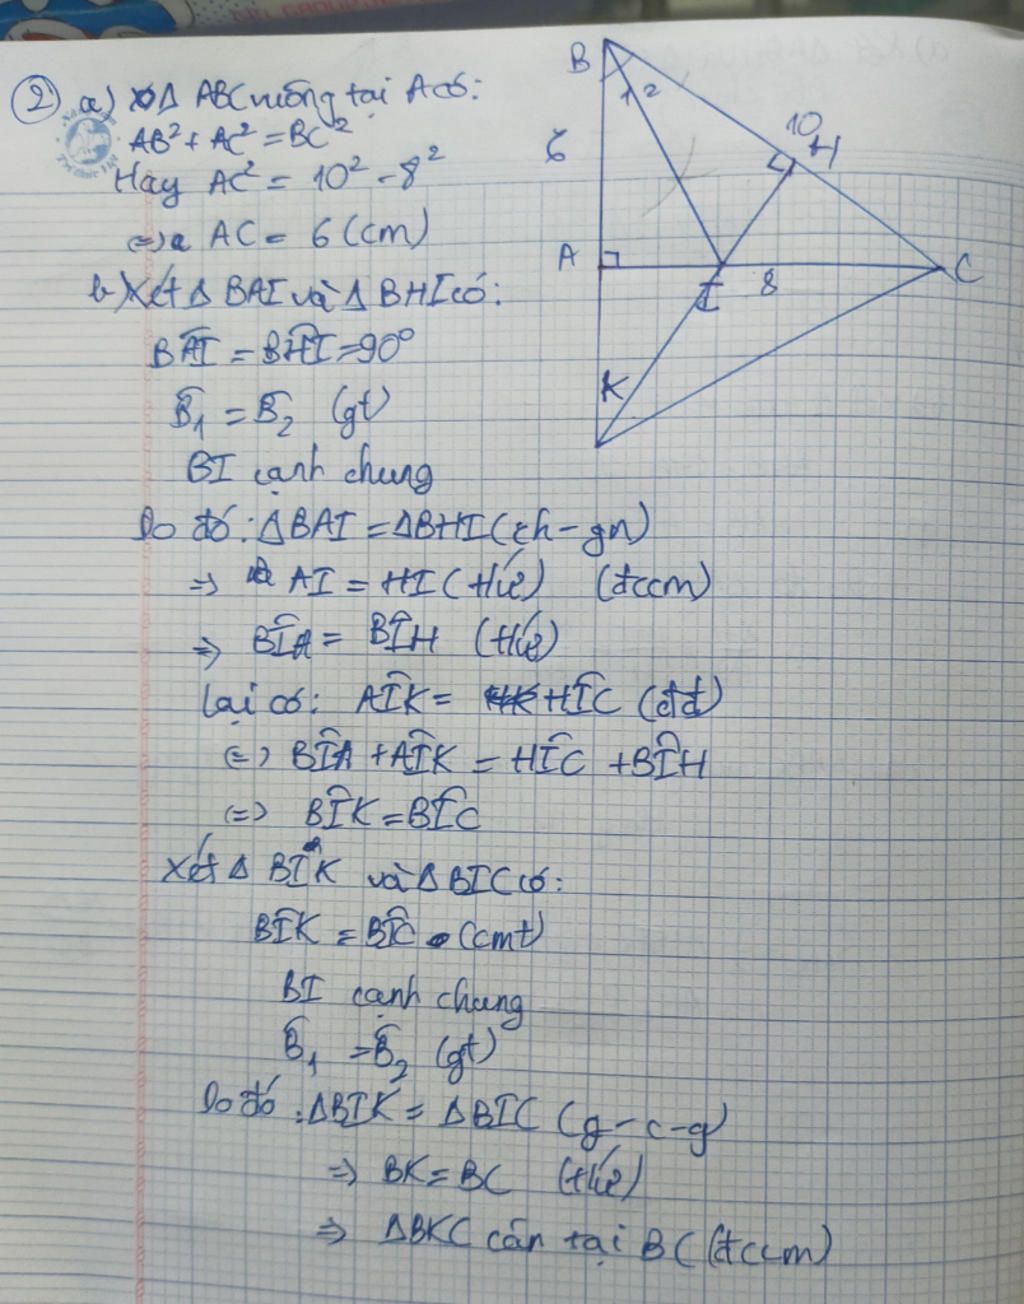 2) a) Δ ABC vuông tại A có:
AB² + AC² = BC²
Hay AC² = 10² - 8²
⇔ AC = 6 (cm)
b) Xét Δ BAI và Δ BHI có:
BÂI = BĤI = 90°
B̂₁ = B̂₂ (gt)
BI cạnh chung
Do đó: ΔBAI = ΔBHI (ch - gn)
=> AI = HI (
(đccm)
=> BÎA = BÎH (
Lại có: AÎK = HÎC (đđ)
(=) BÎA + AÎK = HÎC + BÎH
(=) BÎK = BÎC
Xét Δ BIK và Δ BIC có:
BÎK = BÎC (cmt)
BI cạnh chung
B̂₁ = B̂₂ (gt)
Do đó: ΔBIK = ΔBIC (g - c - g)
=> BK = BC (
=> ΔBKC cân tại B (đccm)
B
1 2
6
10
H
A
I
8
C
K